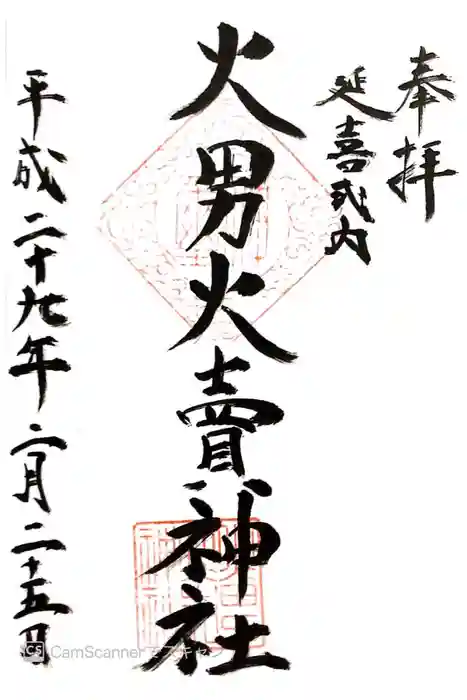 奉拝
延喜式内
火男火賣神社
平成二十九年二月二十五日
CamScannerでスキャン